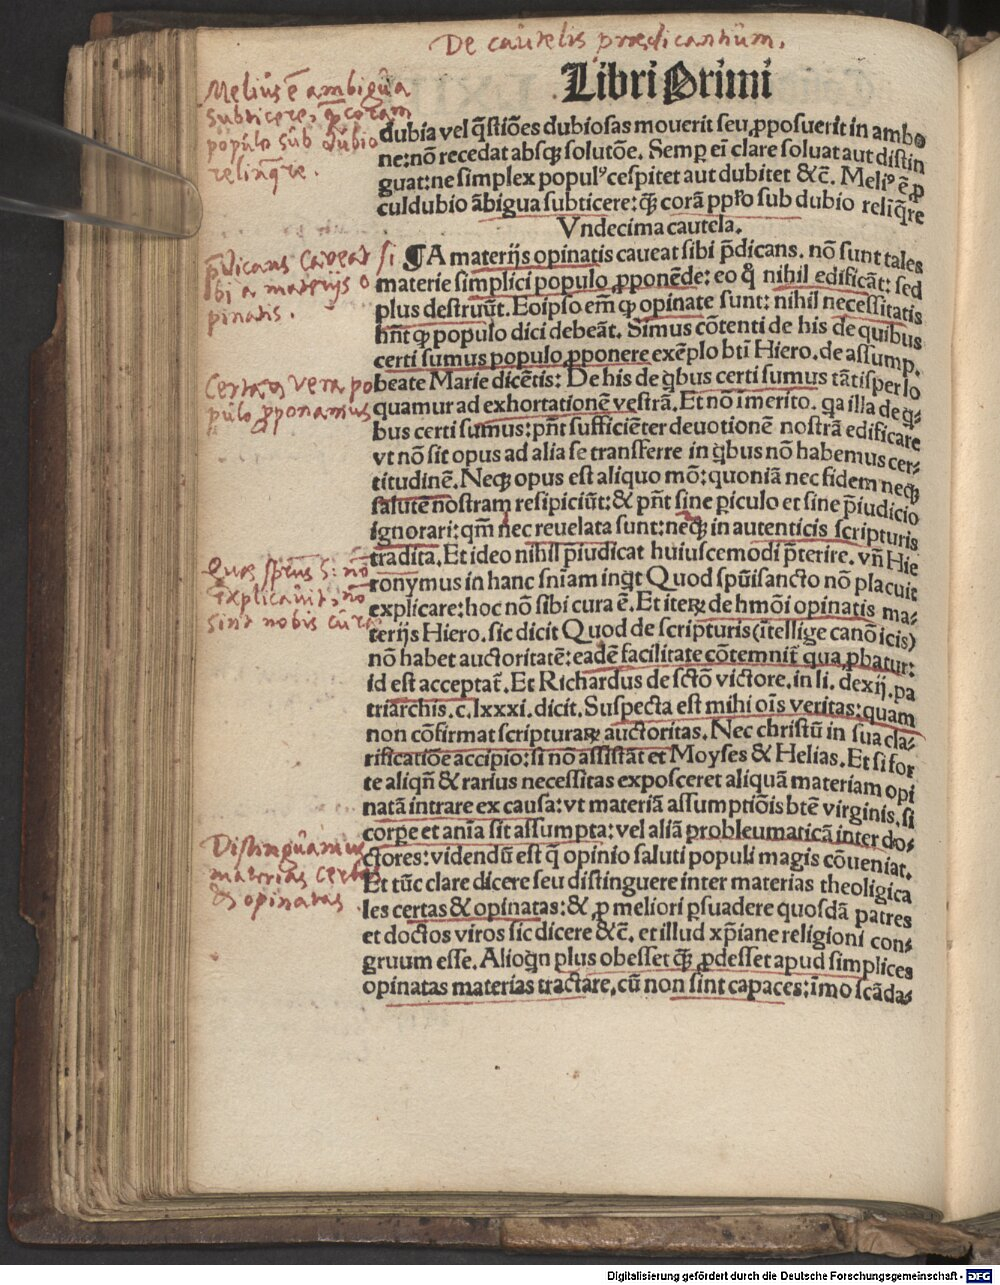 De cautelis prædicantium.
Libri Primi
Meliꝰ ē ambigua
subticere, q̄ȝ coram
populo sub dubio
relinq̄re.
dubia vel q̄stiões dubiosas mouerit seu ꝓposuerit in ambo
ne: nō recedat absqȝ solutōe. Semꝑ eī clare soluat aut distin
guat: ne simplex populꝰ cespitet aut dubitet &c̄. Meliꝰ ē ꝓ
culdubio ābigua subticere: q̄ȝ corā ppl̄o sub dubio reliq̄re
Vndecima cautela.
p̄dicans caveat si
bi a materijs o
pinatis.
¶ A materijs opinatis caueat sibi p̄dicans. nō sunt tales
materie simplici populo ꝓponēde: eo ꝙ nihil edificāt: sed
plus destruūt. Eoipso em̄ ꝙ opinate sunt: nihil necessitatis
hn̄t ꝙ populo dici debeāt. Simus cōtenti de his de quibus
certi sumus populo ꝓponere exēplo btī Hiero. de assump.
Certa & vera po
pulo ꝓponamus
beate Marie dicētis: De his de q̇bus certi sumus tātisper lo
quamur ad exhortationē vestrā. Et nō imerito. qa illa de q̇-
bus certi sumus: pn̄t sufficiēter deuotionē nostrā edificare
vt nō sit opus ad alia se transferre in q̇bus nō habemus cer-
titudinē. Neqȝ opus est aliquo mō: quoniā nec fidem neqȝ
salutē nostram resipiciūt: & pn̄t sine ꝑiculo et sine p̄iudicio
ignorari: qm̄ nec reuelata sunt: neqȝ in autenticis scripturis
tradita. Et ideo nihil p̄iudicat huiuscemodi p̄terire. vn̄ Hie
Quæ spūs S: nō
explicavit, nō
sint nobis curæ
ronymus in hanc sn̄iam inq̇t Quod spūisancto nō placuit
explicare: hoc nō sibi cura ē. Et iteꝝ de hmōi opinatis ma-
terijs Hiero. sic dicit Quod de scripturis (ītellige canōicis)
nō habet auctoritatē: eadē facilitate cōtemnit̄ qua ꝓbatur:
id est acceptat̄. Et Richardus de sctō victore. in li. de xij. pa
triarchis. c. lxxxi. dicit. Suspecta est mihi oīs veritas: quam
non cōfirmat scripturaꝝ auctoritas. Nec christū in sua cla-
rificatiōe accipio: si nō assistāt et Moyses & Helias. Et si for
te aliqn̄ & rarius necessitas exposceret aliquā materiam opi
natā intrare ex causa: vt materiā assumptiōis btē virginis. si
corꝑe et aīa sit assumpta: vel aliā probleumaticā inter do-
Distinguamus
materias certas
& opinatas
ctores: videndū est q̄ opinio saluti populi magis cōueniat.
Et tūc clare dicere seu distinguere inter materias theologica
les certas & opinatas: & ꝓ meliori ꝑsuadere quosdā patres
et doctos viros sic dicere &c̄. et illud xp̄iane religioni con-
gruum esse. Alioq̇n plus obesset q̄ȝ ꝓdesset apud simplices
opinatas materias tractare, cū non sint capaces: īmo scāda-
Digitalisierung gefördert durch die Deutsche Forschungsgemeinschaft - DFG